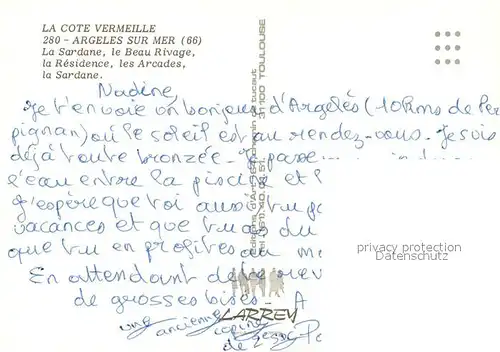 LA COTE VERMEILLE
280 - ARGELES SUR MER (66)
La Sardane, le Beau Rivage,
la Résidence, les Arcades,
la Sardane.
Nadine,
Je t'envoie un bonjour d'Argelès (10kms de Per
pignan) où le soleil est au rendez-vous. Je suis
déjà toute bronzée. Je passe
l'eau entre la piscine et l
J'espère que toi aussi tu pa
vacances et que tu as du
que tu en profites au m
En attendant de te rev
de grosses bises. A
une ancienne copine
de
privacy protection
Datenschutz
31100 TOULOUSE
LARREY